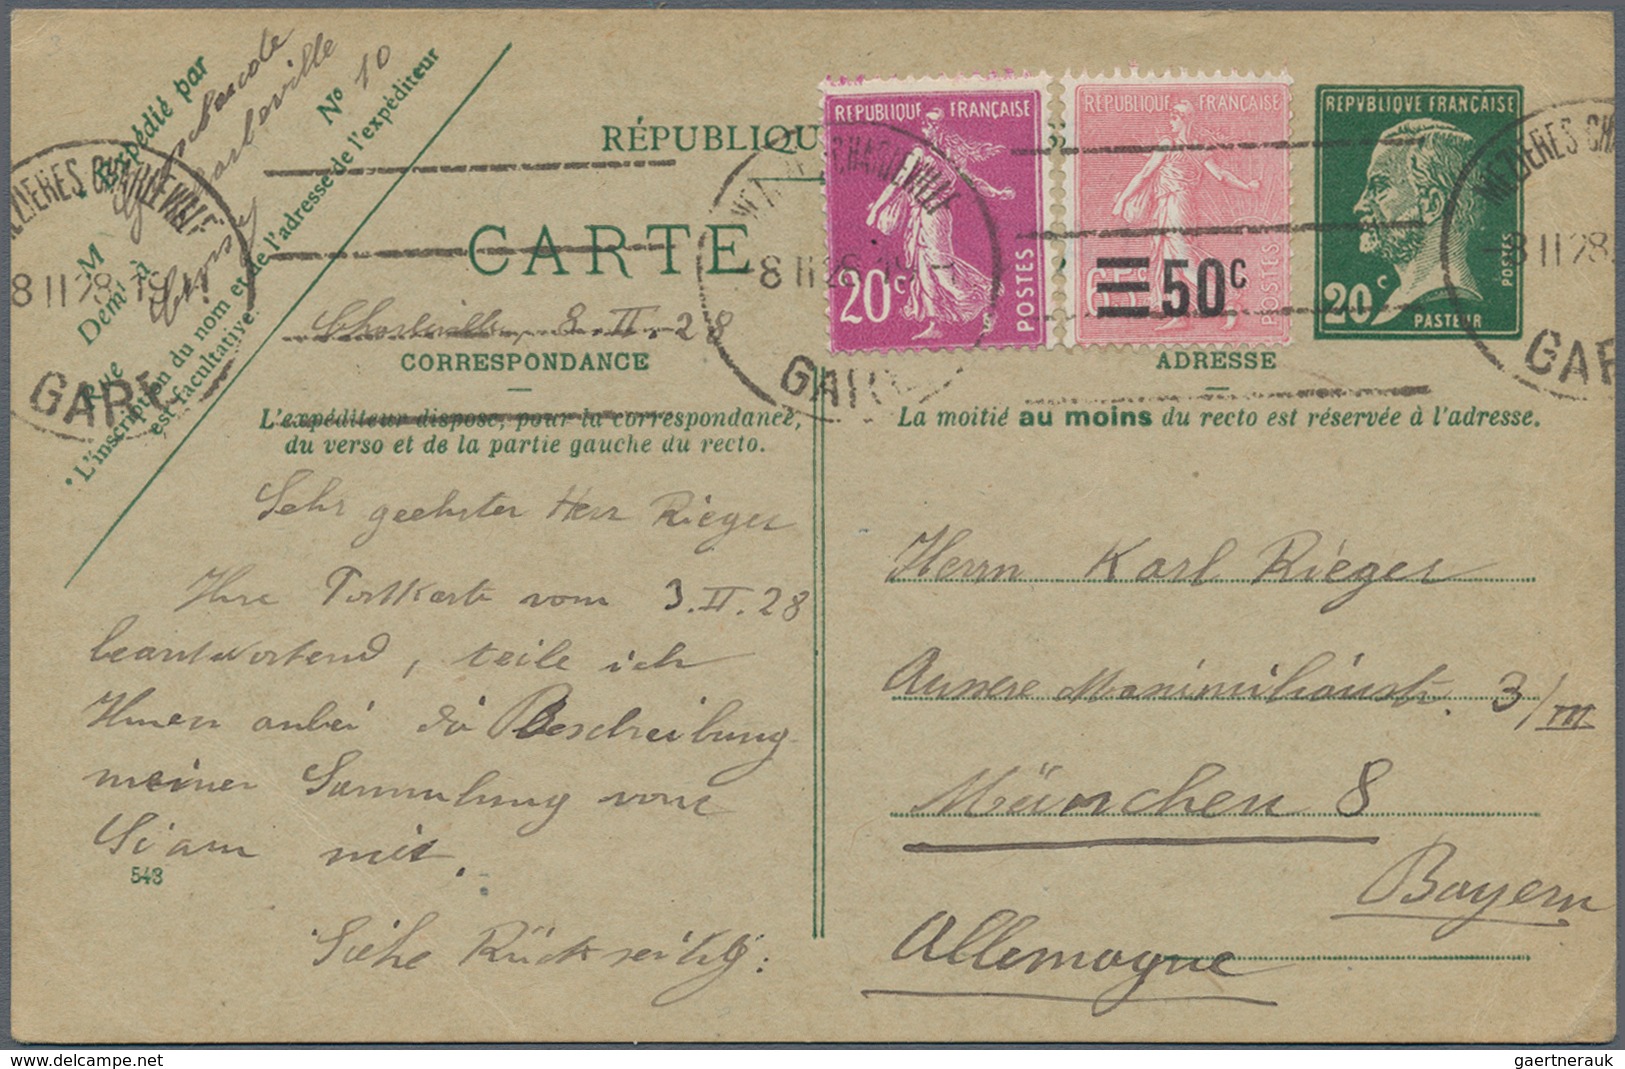 Expédié par
No 10
M
Demt à
Rue
L'inscription du nom et de l'adresse de l'expéditeur
est facultative.
MEZIERES CHARLEVILLE
8 II 28
GARE
RÉPUBLIQU
CARTE
Charleville, 8.II.28
CORRESPONDANCE
L'expéditeur dispose, pour la correspondance,
du verso et de la partie gauche du recto.
Sehr geehrter Herr Rieger
Ihre Postkarte vom 3.II.28
beantwortend, teile ich
Ihnen anbei die Beschreibung
meiner Sammlung von
Siam mit.
543
Siehe Rückseitig:
CHARLEVILLE
8 II 28
GARE
RÉPUBLIQUE FRANÇAISE
20c
POSTES
RÉPUBLIQUE FRANÇAISE
65c
50c
POSTES
REPVBLIQVE FRANÇAISE
20c
POSTES
PASTEUR
MEZIERES CHA
8 II 28
GAR
ADRESSE
La moitié au moins du recto est réservée à l'adresse.
Herrn Karl Rieger
Aussere Maximilianstr. 3/III
München 8
Bayern
Allemagne
gaertnerauk